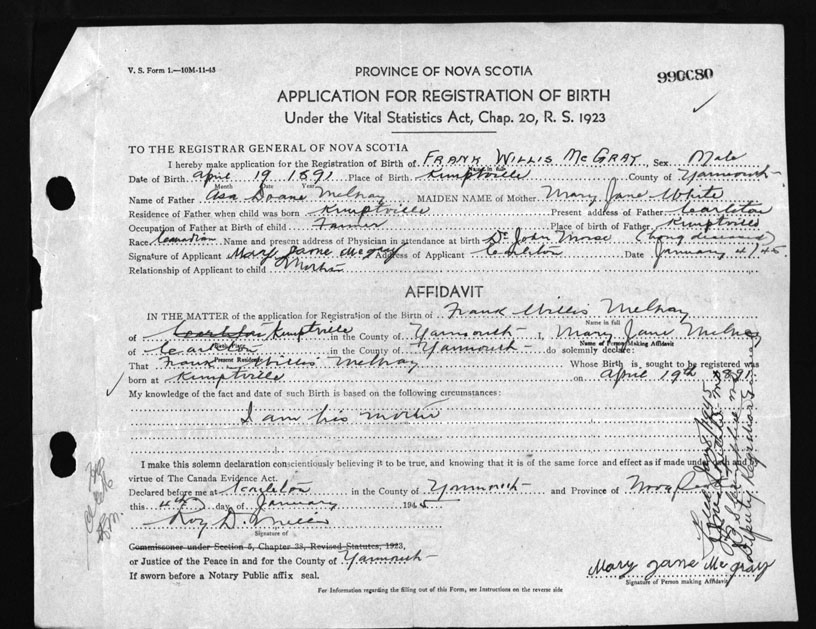 V. S. Form 1.—10M-11-43
990080
PROVINCE OF NOVA SCOTIA
APPLICATION FOR REGISTRATION OF BIRTH
Under the Vital Statistics Act, Chap. 20, R. S. 1923
TO THE REGISTRAR GENERAL OF NOVA SCOTIA
I hereby make application for the Registration of Birth of Frank Willis McGray, Sex Male
Name in full
Date of Birth April 19 1891 Place of Birth Kemptville County of Yarmouth
Month Date Year
Name of Father Asa Doane McGray MAIDEN NAME of Mother Mary Jane White
Residence of Father when child was born Kemptville Present address of Father Carleton
Occupation of Father at Birth of child Farmer Place of birth of Father Kemptville
Race Canadian Name and present address of Physician in attendance at birth Dr John Morse (long deceased)
Signature of Applicant Mary Jane McGray Address of Applicant Carleton Date January 4/45.
Relationship of Applicant to child Mother
AFFIDAVIT
IN THE MATTER of the application for Registration of the Birth of Frank Willis McGray
Name in full
of Carleton Kemptville in the County of Yarmouth I, Mary Jane McGray
Birth Place Name of Person Making Affidavit
of Carleton in the County of Yarmouth do solemnly declare:
Present Residence
That Frank Willis McGray Whose Birth is sought to be registered was
born at Kemptville on April 19th 1891
My knowledge of the fact and date of such Birth is based on the following circumstances:
I am his mother
I make this solemn declaration conscientiously believing it to be true, and knowing that it is of the same force and effect as if made under oath and by
virtue of The Canada Evidence Act.
Declared before me at Carleton in the County of Yarmouth and Province of Nova
this 4th day of January 1945
Roy D. Miller
Signature of
Commissoner under Section 5, Chapter 38, Revised Statutes, 1923,
or Justice of the Peace in and for the County of Yarmouth
If sworn before a Notary Public affix seal.
Mary Jane McGray
Signature of Person making Affidavit
For Information regarding the filling out of this Form, see Instructions on the reverse side
Deputy Registrar